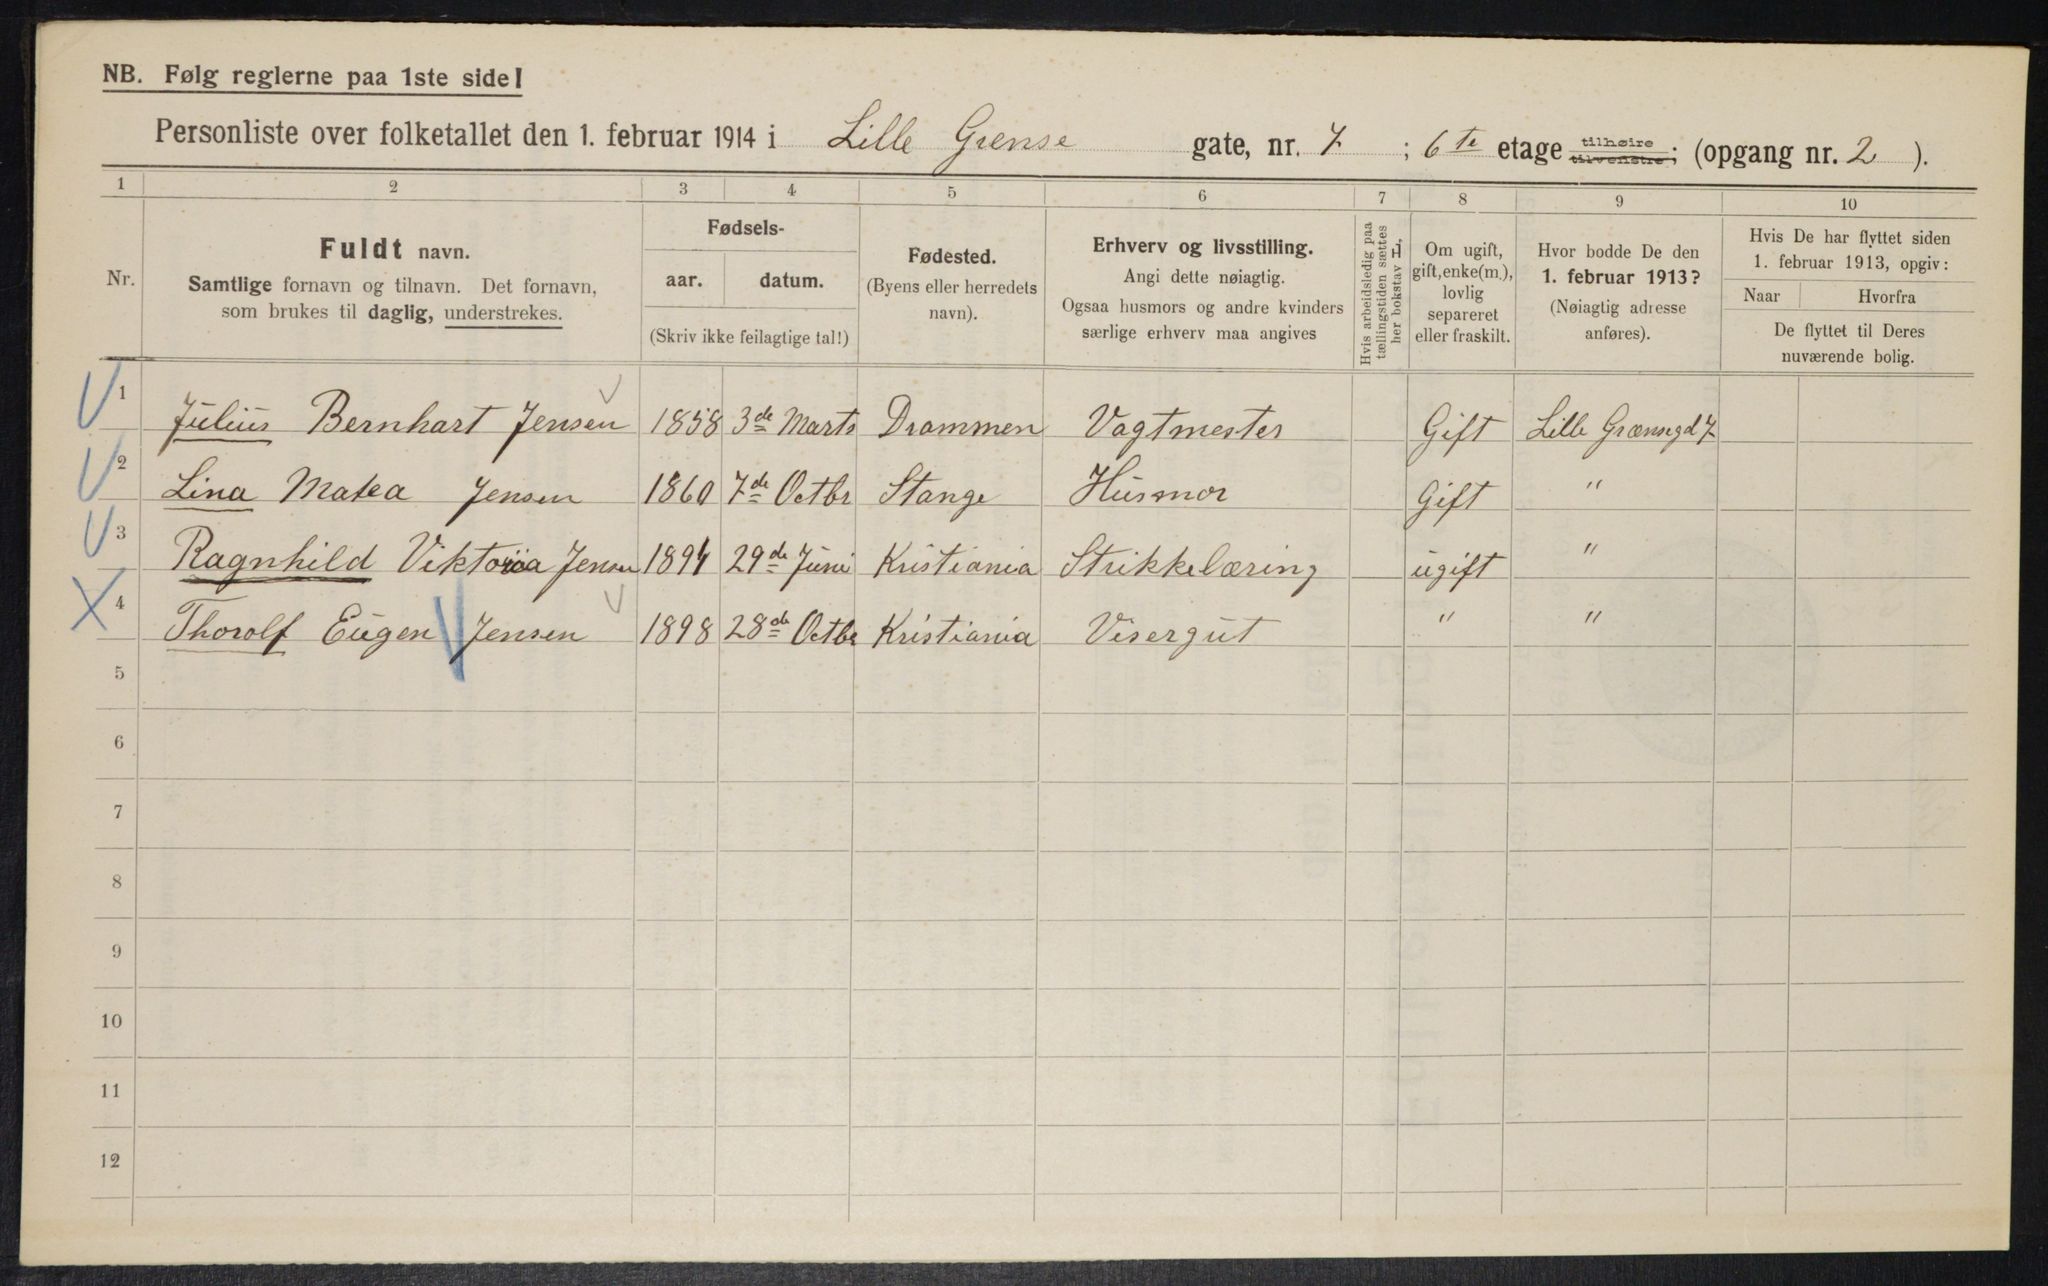 NB. Følg reglerne paa 1ste side!
Personliste over folketallet den 1. februar 1914 i Lille Grense gate, nr. 7 ; 6te etage tilhøire tilvenstre; (opgang nr. 2 ).
1 2 3 4 5 6 7 8 9 10
Nr.
Fuldt navn.
Samtlige fornavn og tilnavn. Det fornavn,
som brukes til daglig, understrekes.
Fødsels-
aar. datum.
(Skriv ikke feilagtige tal!)
Fødested.
(Byens eller herredets
navn).
Erhverv og livsstilling.
Angi dette nøiagtig.
Ogsaa husmors og andre kvinders
særlige erhverv maa angives
Hvis arbeidsledig paa
tællingstiden sættes
her bokstav L.
Om ugift,
gift, enke(m.),
lovlig
separeret
eller fraskilt.
Hvor bodde De den
1. februar 1913?
(Nøiagtig adresse
anføres).
Hvis De har flyttet siden
1. februar 1913, opgiv:
Naar Hvorfra
De flyttet til Deres
nuværende bolig.
1 Julius Bernhart Jensen 1858 3de Marts Drammen Vagtmester Gift Lille Grænsegd 7
2 Lina Matea Jensen 1860 7de Octbr Stange Husmor Gift "
3 Ragnhild Viktoria Jensen 1894 29de Juni Kristiania Strikkelæring ugift "
4 Thorolf Eugen Jensen 1898 28de Octbr Kristiania Visergut " "
5
6
7
8
9
10
11
12